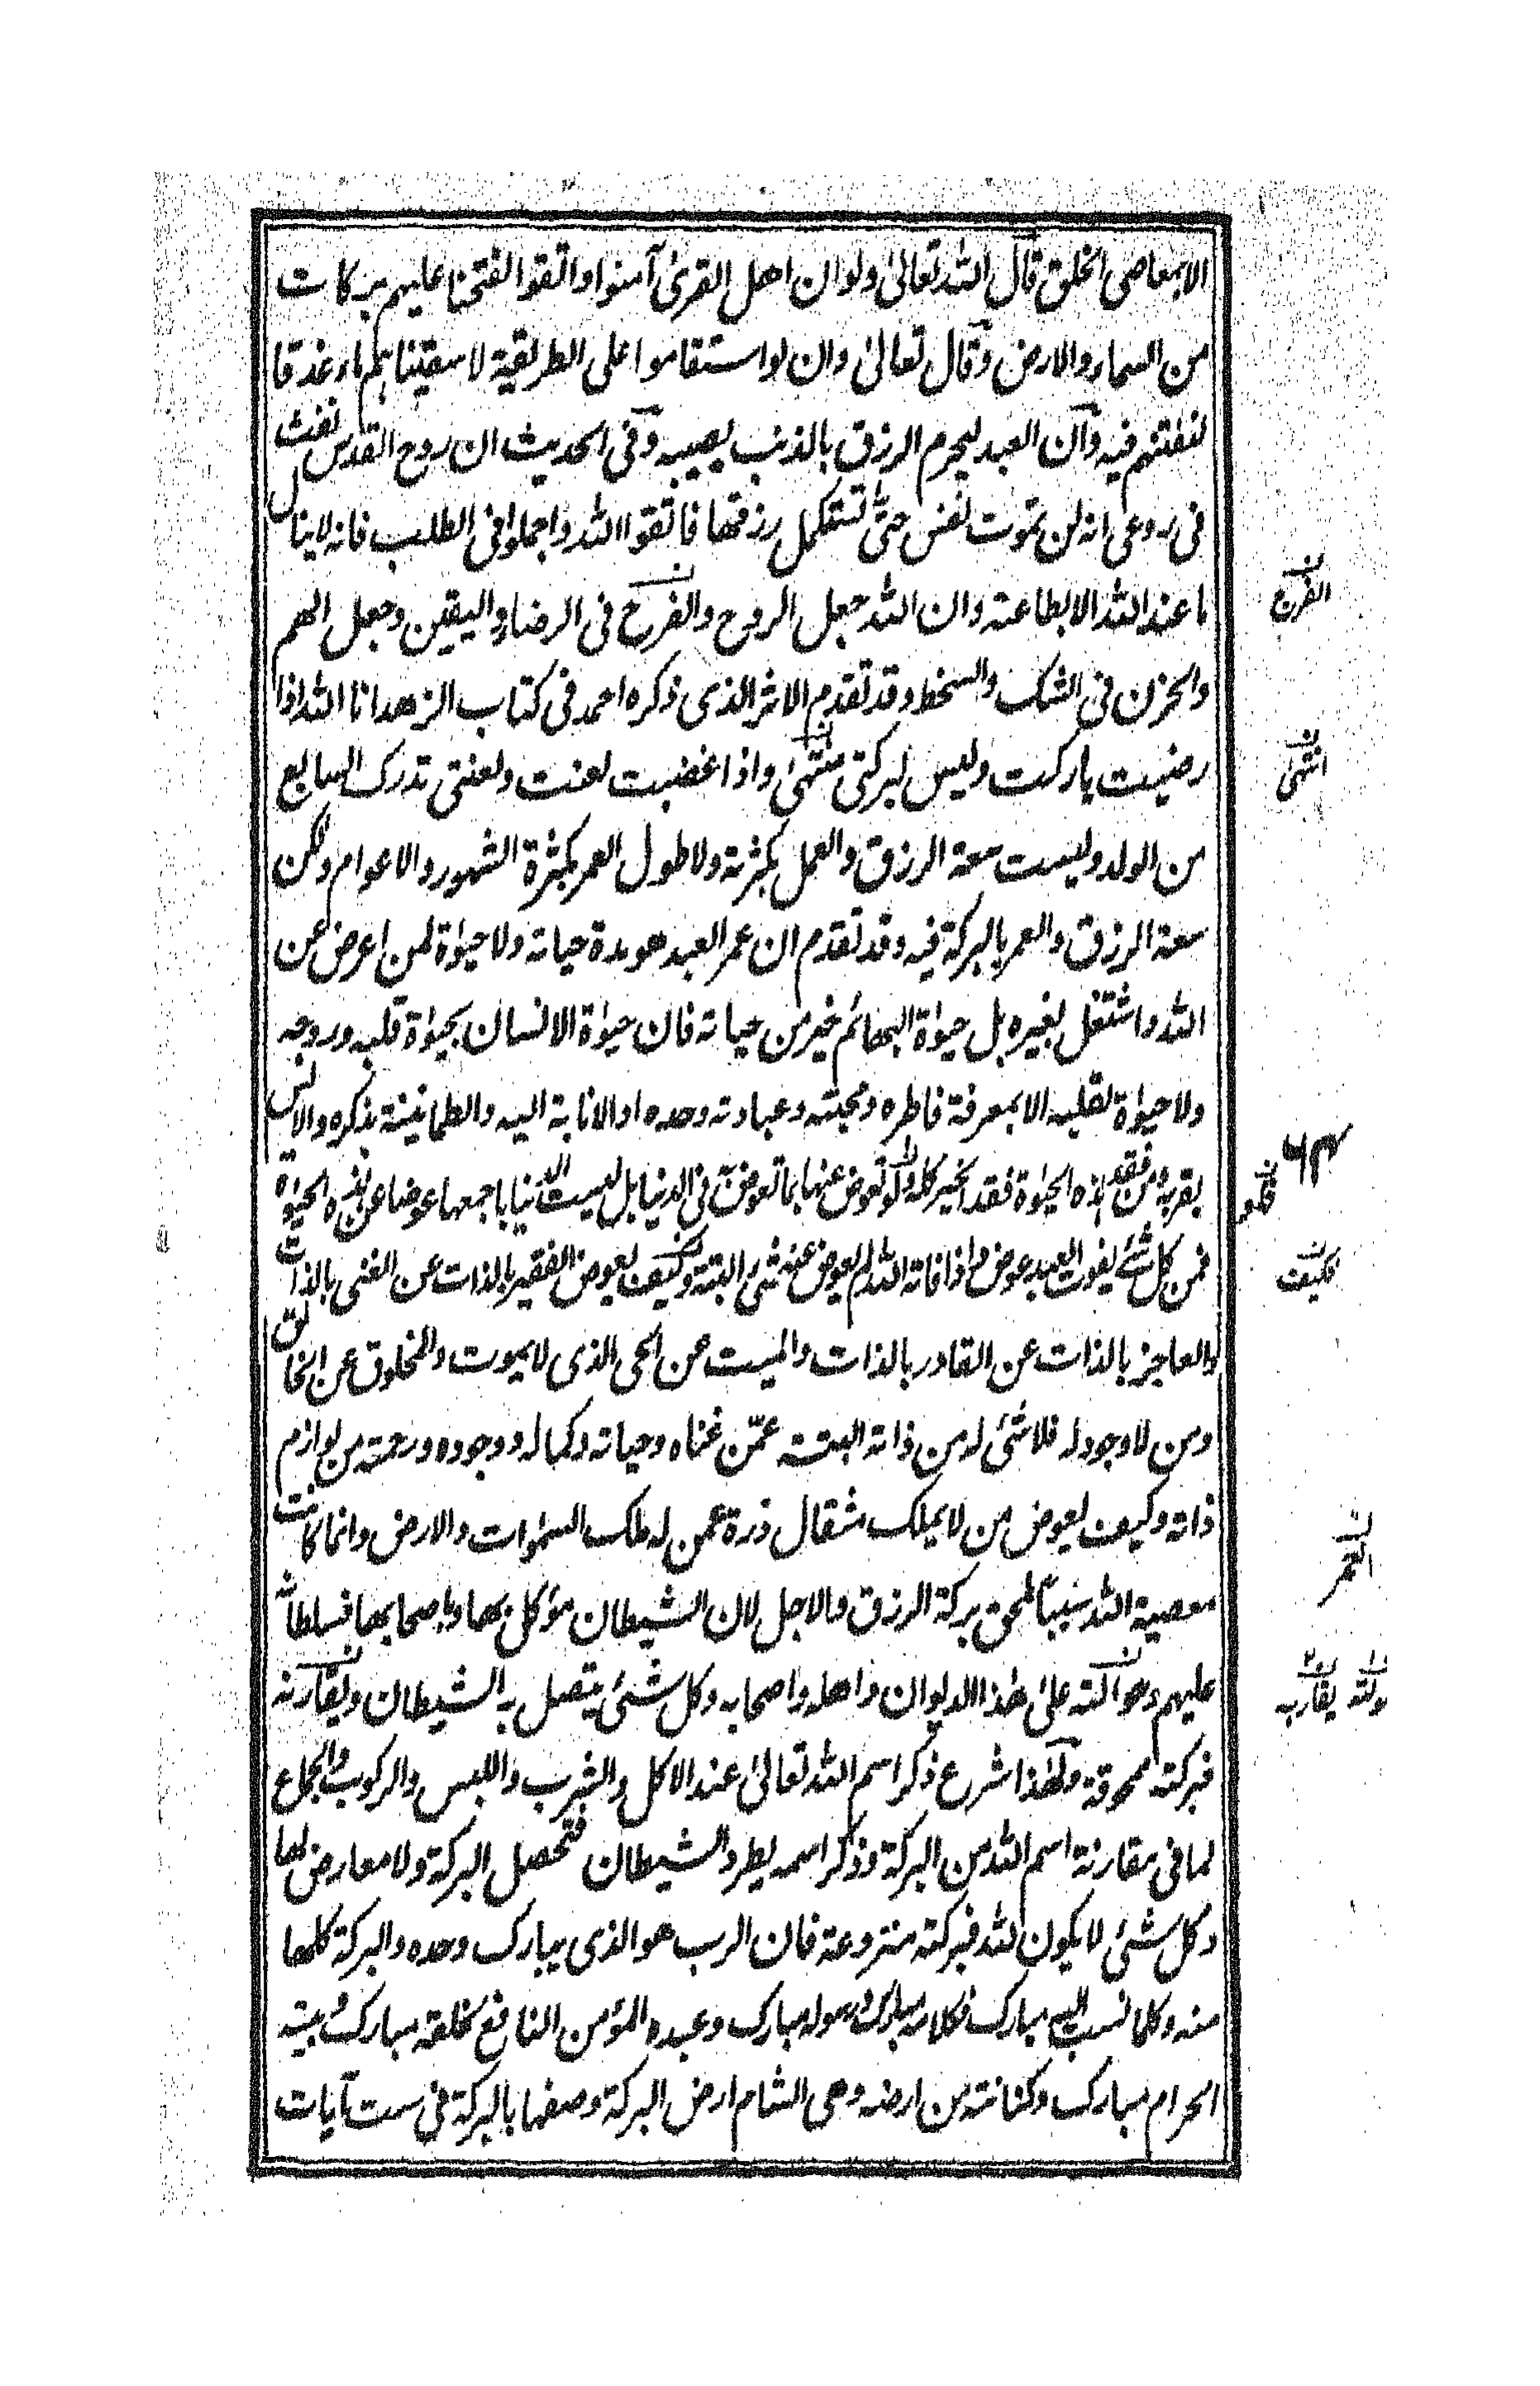 الا بمعاصى الخلق قال الله تعالىٰ ولو ان اهل القرىٰ آمنوا واتقوا لفتحنا عليهم بركات
من السماء والارض وقال تعالىٰ وان لو استقاموا على الطريقة لاسقيناهم ماء غدقا
لنفتنهم فيه وان العبد ليحرم الرزق بالذنب يصيبه وفى الحديث ان روح القدس نفث
فى روعى انه لن تموت نفس حتىٰ تستكمل رزقها فاتقوا الله واجملوا فى الطلب فانه لا ينال
ما عند الله الا بطاعته وان الله جعل الروح والفرح فى الرضاء واليقين وجعل الهم
والحزن فى الشك والسخط وقد تقدم الاثر الذى ذكره احمد فى كتاب الزهد انا الله اذا
رضيت باركت وليس لبركتى منتهىٰ واذا غضبت لعنت ولعنتى تدرك السابع
من الولد وليست سعة الرزق والعمل بكثرته ولا طول العمر بكثرة الشهور والاعوام ولكن
سعة الرزق والعمر بالبركة فيه وقد تقدم ان عمر العبد هو مدة حياته ولا حيوٰة لمن اعرض عن
الله واشتغل بغيره بل حيوٰة البهائم خير من حياته فان حيوٰة الانسان بحيوٰة قلبه وروحه
ولا حيوٰة لقلبه الا بمعرفة فاطره ومحبته وعبادته وحده او الانابة اليه والطمانينة بذكره والانس
بقربه ومن فقد هذه الحيوٰة فقد الخير كله ولو تعوض عنها بما تعوض فى الدنيا بل ليست الدنيا باجمعها عوضا عن هذه الحيوٰة
فمن كل شئ يفوت العبد عوض واذا فاته الله لم يعوض عنه شئ البتة وكيف يعوض الفقير بالذات عن الغنى بالذات
والعاجز بالذات عن القادر بالذات والميت عن الحى الذى لا يموت والمخلوق عن الخالق
ومن لا وجود له فلا شئ له من ذاته البتة عمّن غناه وحياته وكماله ووجوده ورحمته من لوازم
ذاته وكيف يعوض من لا يملك مثقال ذرة عمن له ملك السمٰوات والارض وانما كانت
معصية الله سببًا لمحق بركة الرزق والاجل لان الشيطان مؤكل بها وباصحابها فسلطانه
عليهم وحوالته علىٰ هٰذا الديوان واهله واصحابه وكل شئ يتصل به الشيطان ويقارنه
فبركته ممحوقة ولهٰذا شرع ذكر اسم الله تعالىٰ عند الاكل والشرب واللبس والركوب والجماع
لما فى مقارنة اسم الله من البركة وذكر اسمه يطرد الشيطان فتحصل البركة ولا معارض لها
وكل شئ لا يكون لله فبركته منزوعة فان الرب هو الذى يبارك وحده والبركة كلها
منه وكلما نسب اليه مبارك فكلامه مبارك ورسوله مبارك وعبده المؤمن النافع لخلقه مبارك وبيته
الحرام مبارك وكنانته من ارضه وهى الشام ارض البركة وصفها بالبركة فى ست آيات
الفرج
انتهى
٦٣
فلو
فكيف
العمر
يقاربه